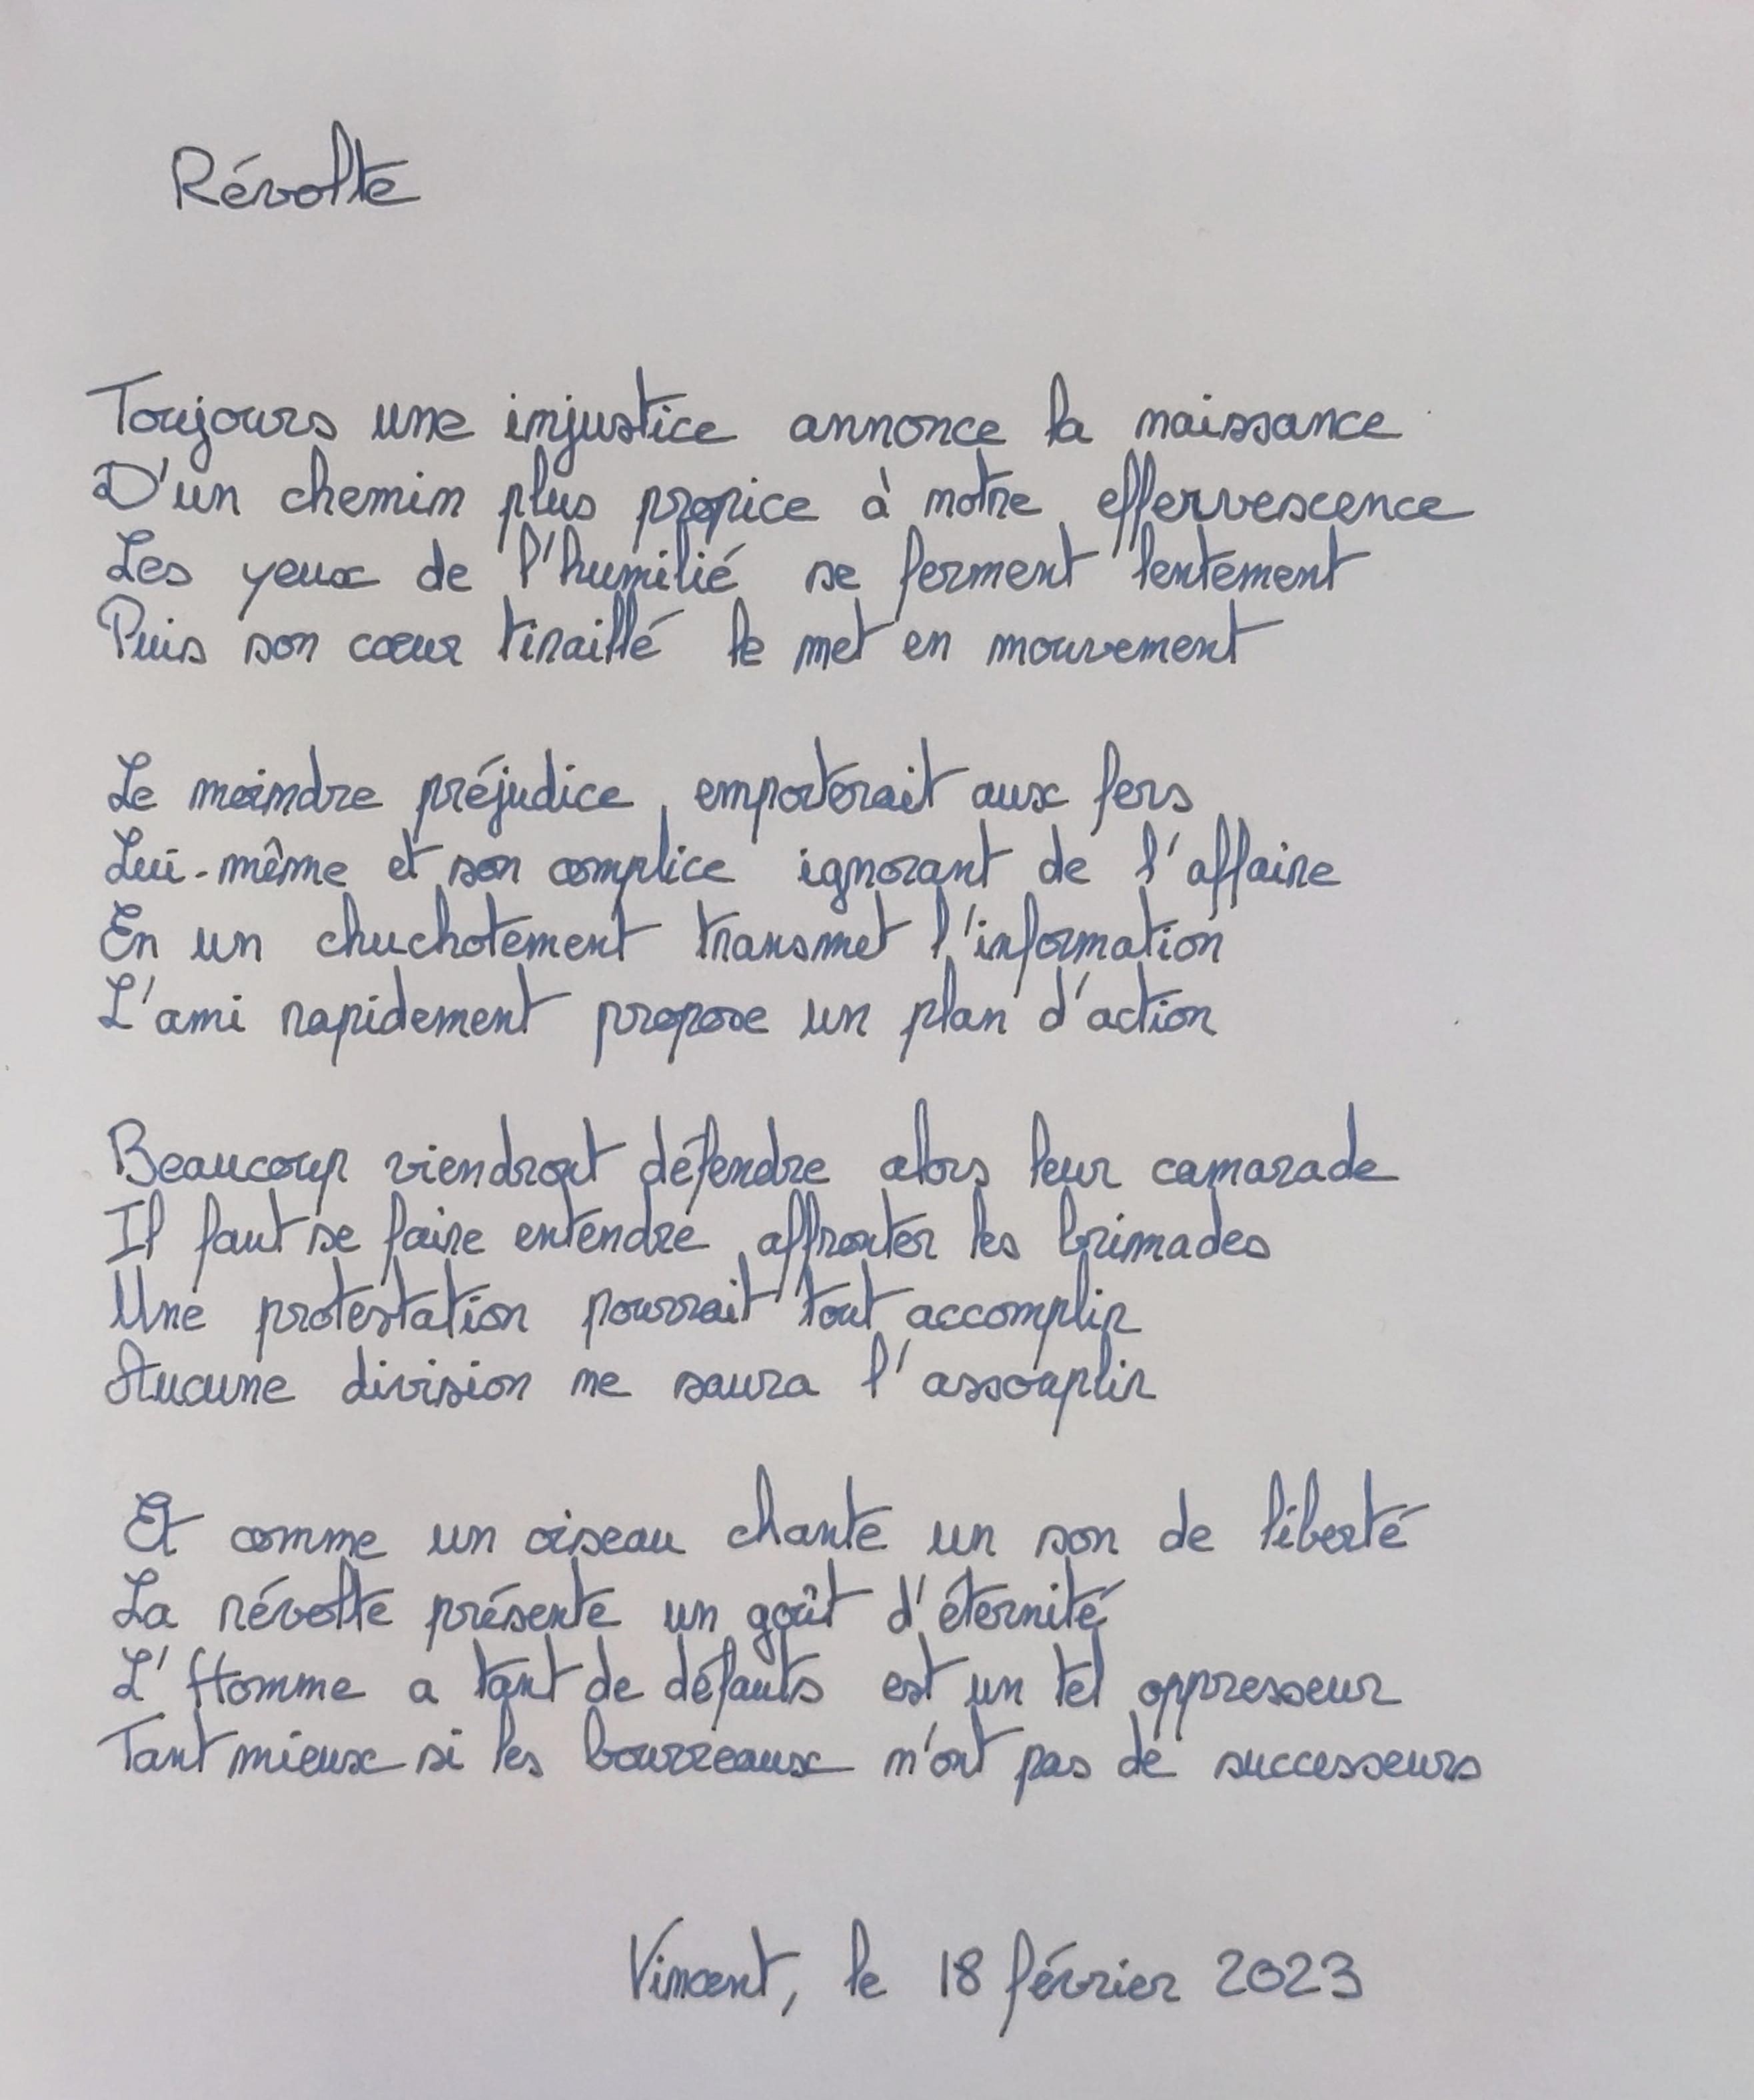 Révolte
Toujours une injustice annonce la naissance
D'un chemin plus propice à notre effervescence
Les yeux de l'humilié se ferment lentement
Puis son cœur tiraillé le met en mouvement
Le moindre préjudice emporterait aux fers
Lui-même et son complice ignorant de l'affaire
En un chuchotement transmet l'information
L'ami rapidement propose un plan d'action
Beaucoup viendront défendre alors leur camarade
Il faut se faire entendre affronter les brimades
Une protestation pourrait tout accomplir
Aucune division ne saura l'assouplir
Et comme un oiseau chante un son de liberté
La révolte présente un goût d'éternité
L'Homme a tant de défauts est un tel oppresseur
Tant mieux si les bourreaux n'ont pas de successeurs
Vincent, le 18 février 2023